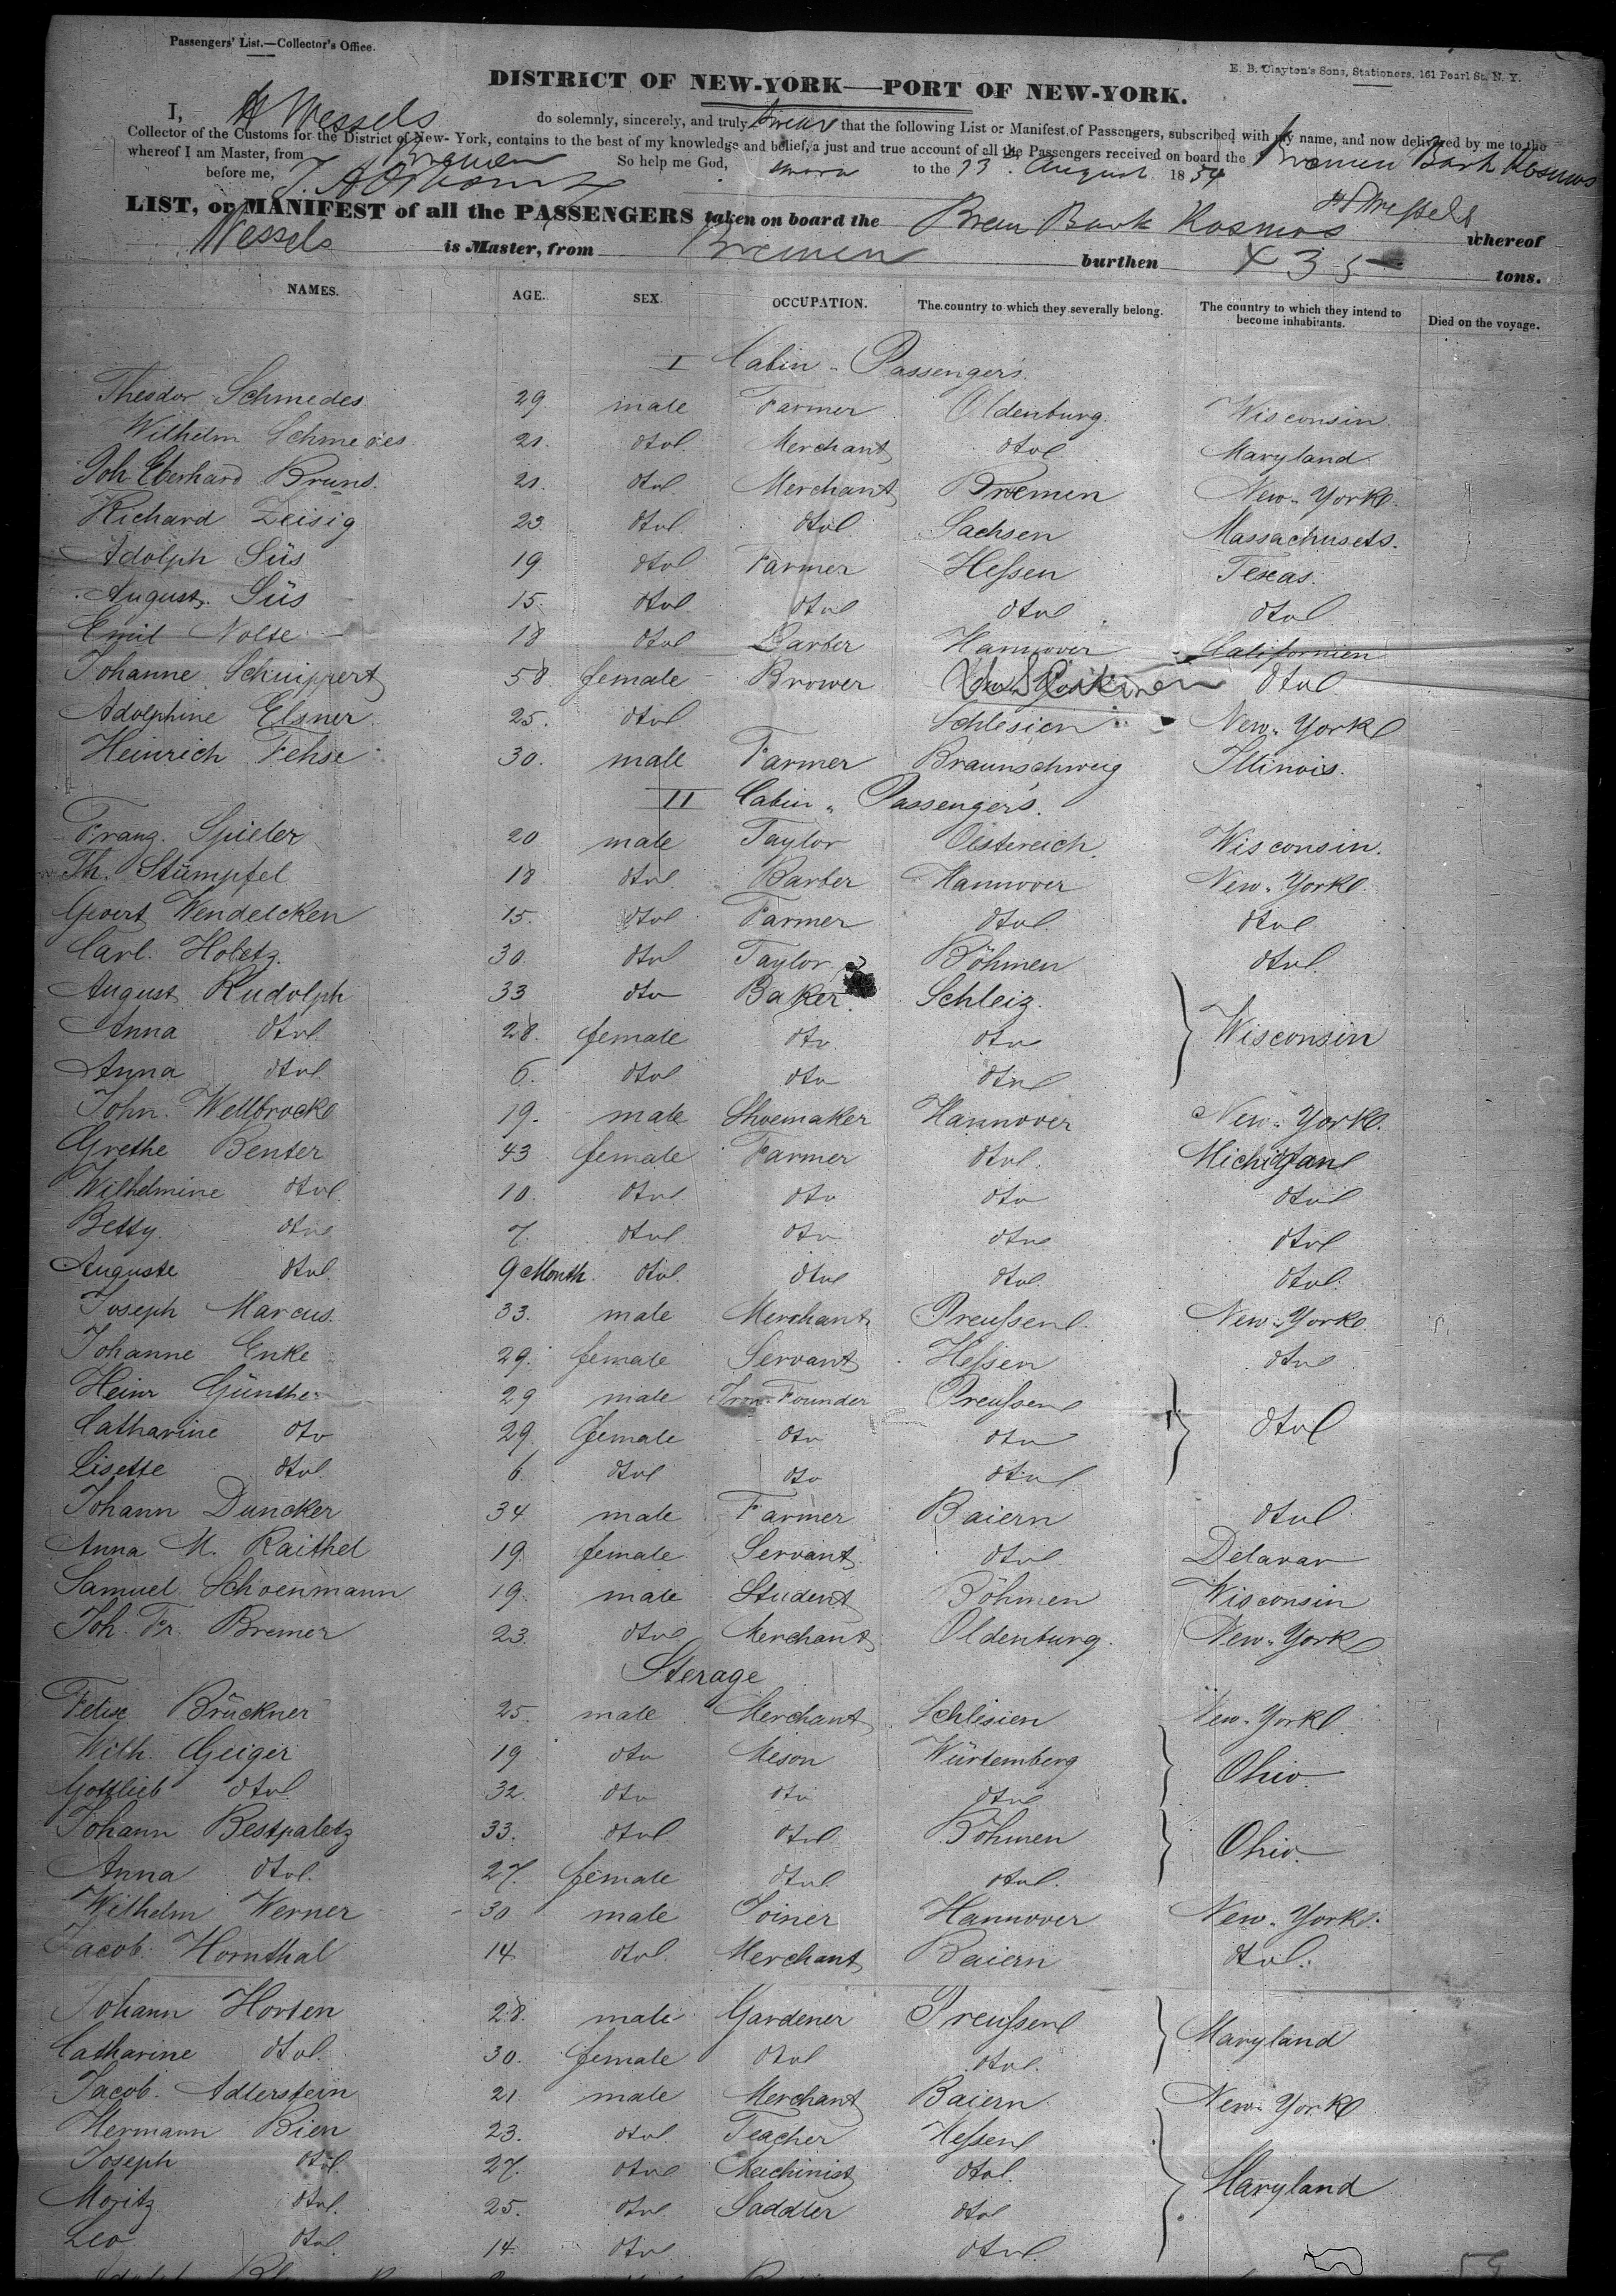 Passengers' List.—Collector's Office.
E. B. Clayton's Sons, Stationers, 161 Pearl St. N. Y.
DISTRICT OF NEW-YORK—PORT OF NEW-YORK.
I, H Wessels do solemnly, sincerely, and truly swear that the following List or Manifest of Passengers, subscribed with my name, and now delivered by me to the
Collector of the Customs for the District of New-York, contains to the best of my knowledge and belief, a just and true account of all the Passengers received on board the Bremen Bark Kosmos
whereof I am Master, from Bremen So help me God,
before me, sworn to the 23 August 1854
H Wessels
LIST, or MANIFEST of all the PASSENGERS taken on board the Brem Bark Kosmos whereof
Wessels is Master, from Bremen burthen 435 tons.
NAMES. AGE. SEX. OCCUPATION. The country to which they severally belong. The country to which they intend to become inhabitants. Died on the voyage.
I Cabin-Passengers.
Theodor Schmedes 29 male Farmer Oldenburg. Wisconsin.
Wilhelm Schmedes 21. dto Merchant dto Maryland
Joh Eberhard Bruns. 21. dto Merchant Bremen New-York.
Richard Zeisig 23. dto dto Sachsen Massachusets.
Adolph Süs 19 dto Farmer Hessen Texas.
August Süs 15. dto dto dto dto
Emil Nolte 18 dto Barber Hannover Californien
Johanne Schuippert 58 female Brower dto
Adolphine Elsner 25. dto Schlesien New-York
Heinrich Fehse 30. male Farmer Braunschweig Illinois.
II Cabin-Passengers.
Franz Spieler 20 male Taylor Oestereich. Wisconsin.
Th. Stümpfel 18 dto Barber Hannover New-York.
Gevert Wendelcken 15. dto Farmer dto dto
Carl Holetz. 30. dto Taylor Böhmen dto
August Rudolph 33 dto Baker. Schleiz.
Anna dto 28. female dto dto Wisconsin
Anna dto 6. dto dto dto
John Wellbrock 19. male Shoemaker Hannover New-York.
Grethe Benter 43 female Farmer dto Michigan
Wilhelmine dto 10. dto dto dto dto
Betty dto 7. dto dto dto dto
Auguste dto 9 Month. dto dto dto dto
Joseph Marcus. 33. male Merchant Preussen New-York
Johanne Enke 29. female Servant Hessen dto
Heinr Günther 29 male Iron-Founder Preussen
Catharine dto 29. female dto dto dto
Lisette dto 6. dto dto dto
Johann Duncker 34 male Farmer Baiern dto
Anna M. Raithel 19. female Servant dto Delavar
Samuel Schoenmann 19. male Student Böhmen Wisconsin
Joh. Fr. Bremer 23. dto Merchant Oldenburg. New-York
Sterage
Felix Brückner 25. male Merchant Schlesien New-York
Wilh. Geiger 19 dto Meson Würtemberg
Ohio.
Gottlieb dto 32. dto dto dto
Johann Bestpaletz 33. dto dto Böhmen
Ohio.
Anna dto 27. female dto dto
Wilhelm Werner 30 male Joiner Hannover New-York.
Jacob Hornthal 14 dto Merchant Baiern dto
Johann Horten 28. male Gardener Preussen
Maryland
Catharine dto 30. female dto dto
Jacob Adlerstein 21. male Merchant Baiern New-York
Hermann Bien 23. dto Teacher Hessen
Joseph dto 27. dto Mechinist dto
Maryland
Moritz dto 25. dto Saddler dto
Leo dto 14. dto dto
59